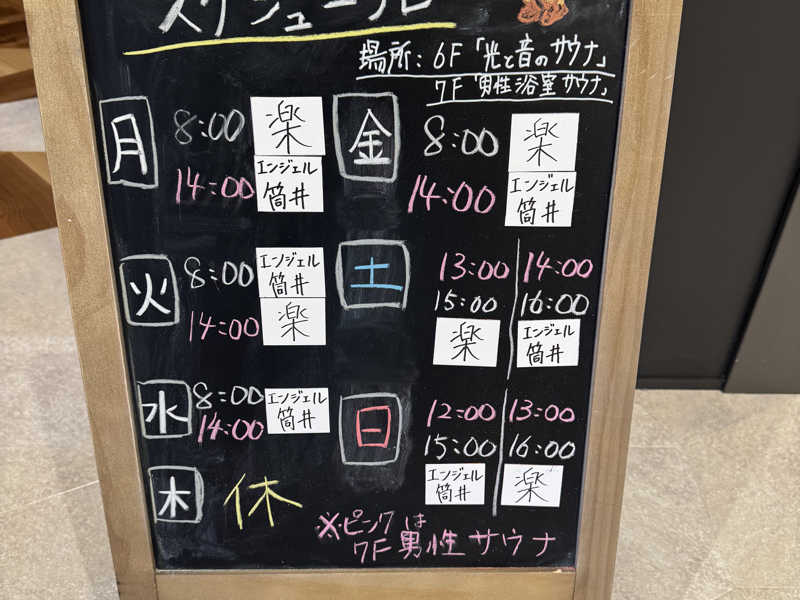 スケジュール
場所：6F「光と音のサウナ」
7F「男性浴室サウナ」
月
8:00 楽
14:00 エンジェル
筒井
火
8:00 エンジェル
筒井
14:00 楽
水
8:00 エンジェル
14:00 筒井
木 休
金
8:00 楽
14:00 エンジェル
筒井
土
13:00 14:00
15:00 16:00
楽 エンジェル
筒井
日
12:00 13:00
15:00 16:00
エンジェル 楽
筒井
※ピンクは
7F男性サウナ